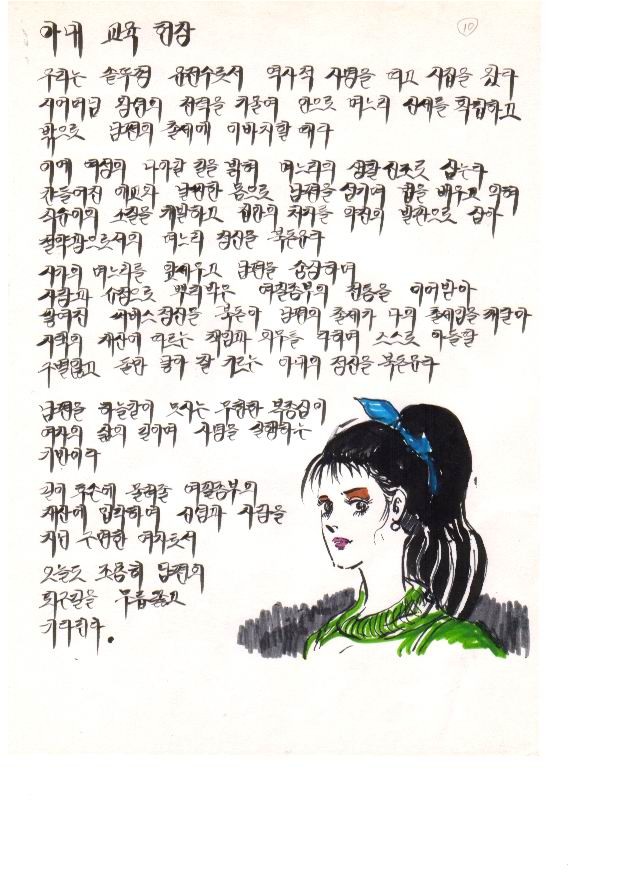 아내 교육 헌장
10
우리는 솥뚜껑 운전수로서 역사적 사명을 띠고 시집을 왔다
시어머님 왕성의 전력을 가울여 안으로 며느리 상세를 확립하고
밖으로 남편의 출세에 이바지할 때다
이에 여성의 나아갈 길을 밝혀 며느리의 생활신조로 삼는다
간들어진 애교와 날씬한 몸으로 남편을 섬기며 법을 배우고 익혀
식순이의 소질을 개발하고 집안의 처지를 약진의 발판으로 삼아
절약함으로서의 며느리 정신을 북돋운다
시가의 며느리를 앞세우고 남편을 숭상하며
사랑과 순정으로 뿌리박은 여필종부의 전통을 이어받아
서비스정신을 북돋아 남편의 출세가 나의 출세임을 깨달아
시댁의 재산에 따르는 책임과 의무를 다하며 스스로 아들딸
구별않고 둘만 낳아 잘 기르는 아내의 정신을 북돋운다
남편을 하늘같이 모시는 무한한 복종심이
여자의 삶의 길이며 사명을 실행하는
기반이다
길이 후손에 물려줄 여필종부의
재산에 입각하며 신념과 사랑을
지닌 현명한 여자로서
오늘도 조용히 남편의
퇴근길을 무릎꿇고
기다린다.